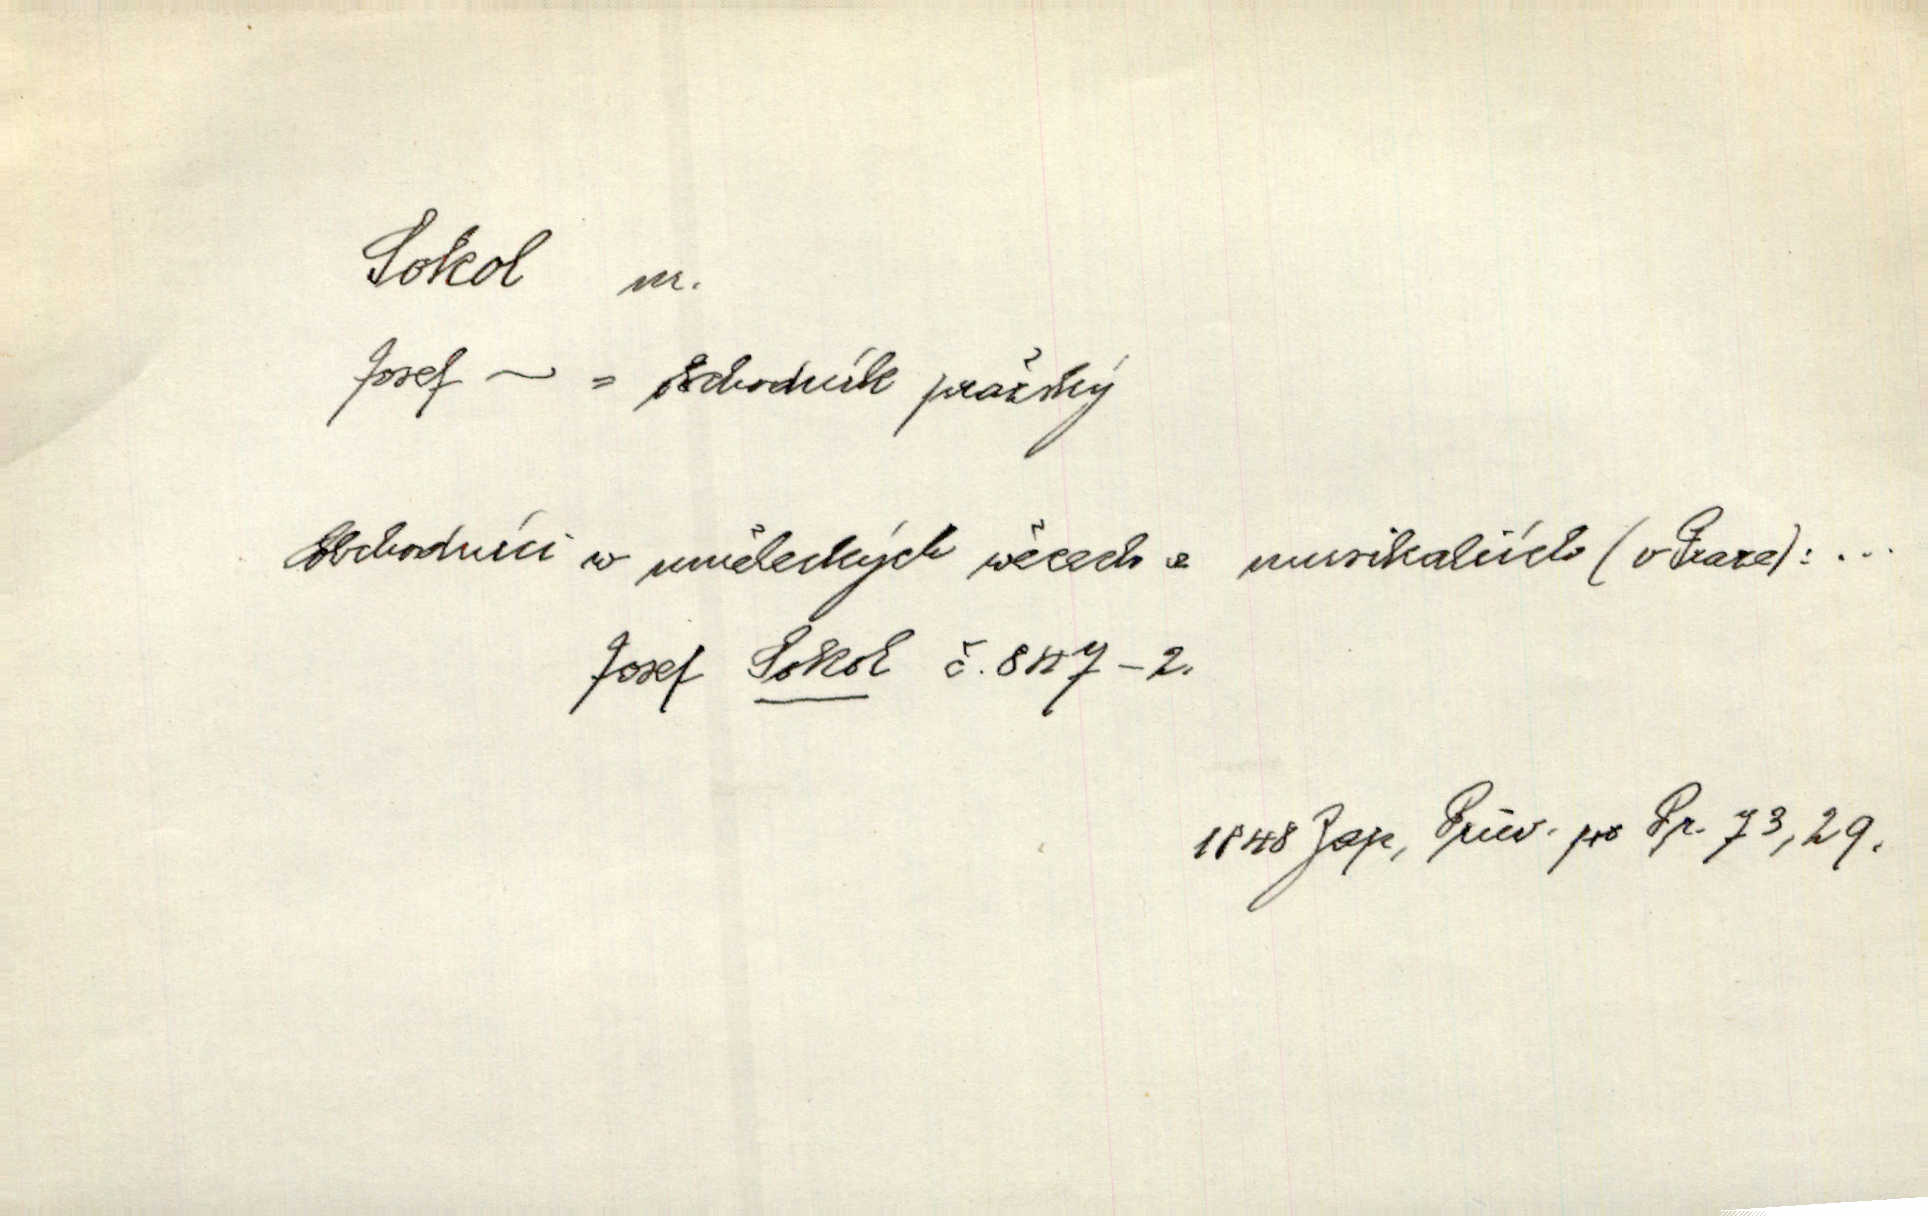 Sokol m.
Josef ~ = obchodník pražský
Obchodníci w uměleckých wěcech a musikaliích (v Praze): ...
Josef Sokol č. 847-2.
1848 Zap, Prův. po Pr. 73, 29.